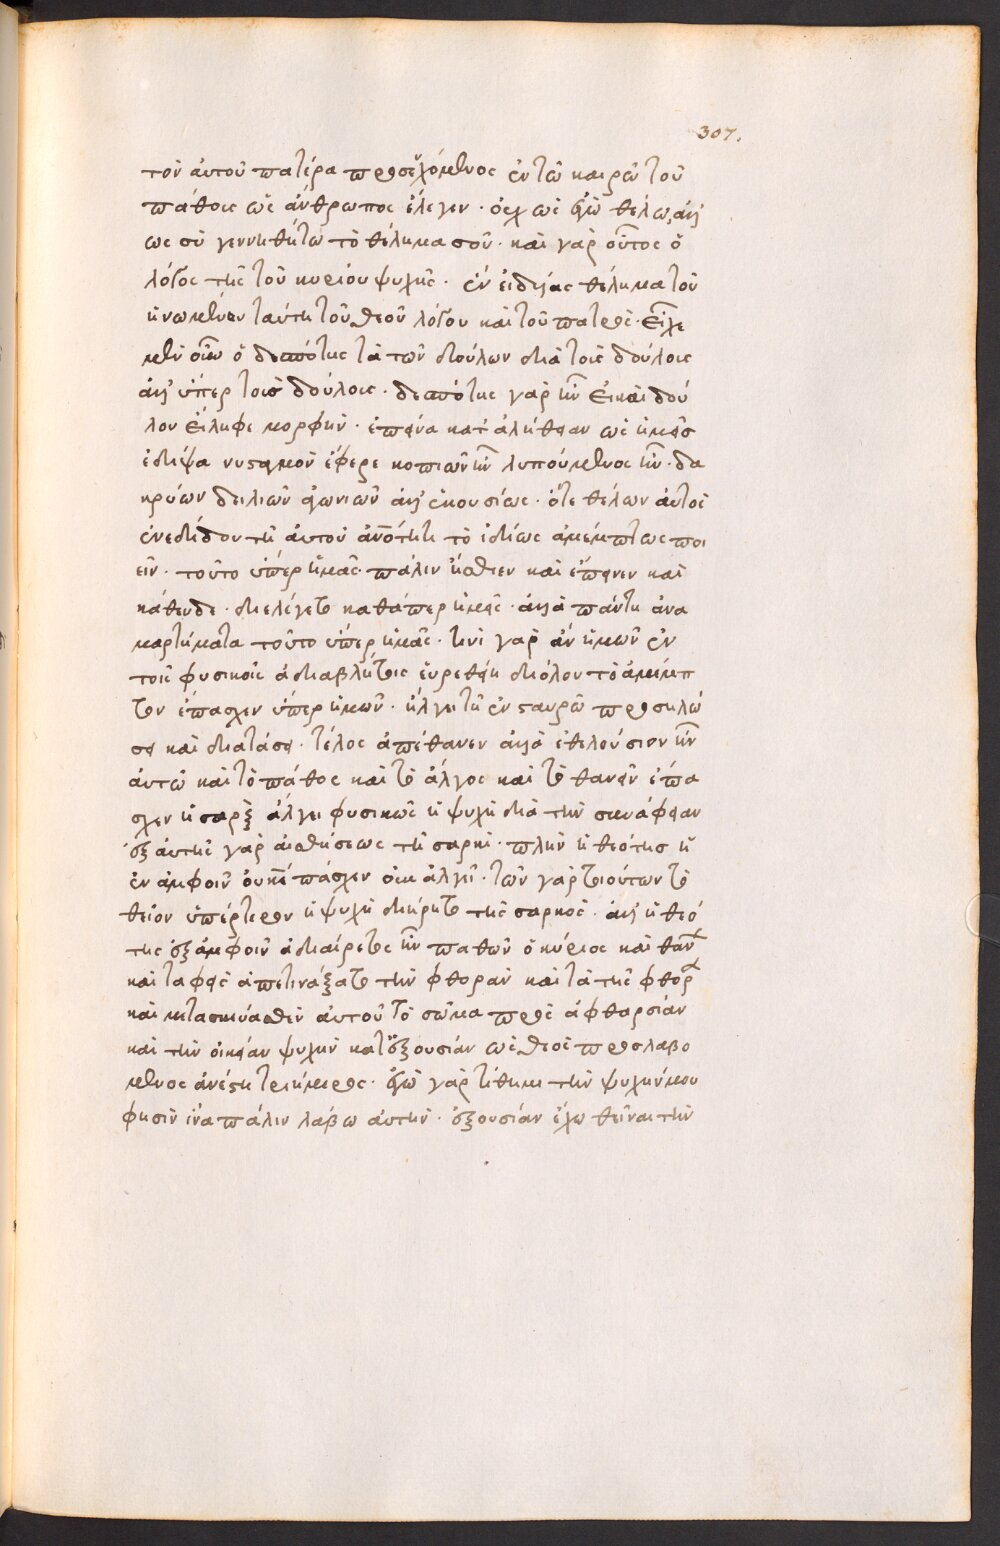 307.
τὸν ἀυτοῦ πατέρα προσεϋχόμενος ἐν τῶ καιρῶ τοῦ
πάθους ὡς ἄνθρωπος ἔλεγεν · οὐχ ὡς ἐγὼ θέλω, ἀλλ'
ὡς σὺ γεννηθήτω τὸ θέλημα σοῦ · καὶ γὰρ οὗτος ὁ
λόγος τῆς τοῦ κυρίου ψυχῆς · ἐν εἰδυίας θέλημα τοῦ
ἡνωμένου ταύτη τοῦ θεοῦ λόγου καὶ τοῦ πατρὸς · εἶχε
μὲν οὖν ὁ δεσπότης τὰ τῶν δούλων διὰ τοὺς δούλους
ἀλλ' ὑπὲρ τοὺς δούλους · δεσπότης γὰρ ἦν εἰ καὶ δού
λου εἴληφε μορφὴν · ἐπείνα κατ' ἀλήθειαν ὡς ἡμεῖς
ἐδίψα νυσταγμὸν ἔφερε κοπιῶν ἦν λυπούμενος ἦν · δα
κρύων δειλιῶν ἀγωνιῶν ἀλλ' ἑκουσίως · ὅτε θέλων αὐτὸς
ἐνεδίδου τῆ αὐτοῦ ἀνότητι τὸ ἰδίως ἀμέμπτως ποι
εῖν · τοῦτο ὑπὲρ ἡμᾶς · πάλιν ἤσθιεν καὶ ἔπινεν καὶ
κάθευδε · διελέγετο καθάπερ ἡμεῖς · ἀλλὰ πάντη ἀνα
μαρτήματα τοῦτο ὑπὲρ ἡμᾶς · τινὶ γὰρ ἂν ἡμῶν ἐν
τοῖς φυσικοῖς ἀδιαβλήτοις εὑρεθείη διόλου τὸ ἀμέμπ
τον ἔπασχεν ὑπὲρ ἡμῶν · ἤλγει τῆ ἐν σταυρῶ προσηλώ
σει καὶ διατάσει · τέλος ἀπέθανεν ἀλλὰ ἐθελούσιον ἦν
αὐτῶ καὶ τὸ πάθος καὶ τὸ ἄλγος καὶ τὸ θανεῖν ἔπα
σχεν ἡ σαρξ ἀλγει φυσικῶς ἡ ψυχὴ διὰ τὴν συνάφειαν
ἐξ αὐτῆς γὰρ αἰσθήσεως τῆ σαρκὶ · πλὴν ἡ θεότησ ἡ
ἐν ἀμφοῖν οὐκ ἔπασχεν οὐκ ἀλγεῖ · τῶν γὰρ τοιούτων τὸ
θεῖον ὑπέρτερον ἡ ψυχὴ διήρητο τῆς σαρκὸς · ἀλλ' ἡ θεό
της ἐξ ἀμφοῖν ἀδιαίρετος ἦν παθῶν ὁ κύριος καὶ θαν
καὶ ταφεὶς ἀπετινάξατο τὴν φθορὰν καὶ τὰ τῆς φθορ
καὶ μετασκευάσθεν αὐτοῦ τὸ σῶμα πρὸς ἀφθαρσίαν
καὶ τὴν οἰκείαν ψυχὴν κατ' ἐξουσίαν ὡς θεὸς προσλαβο
μενος ἀνέστη τριήμερος · ἐγὼ γὰρ τίθημι τὴν ψυχήν μου
φησὶν ἵνα πάλιν λάβω αὐτὴν · ἐξουσίαν ἔχω θεῖναι τὴν